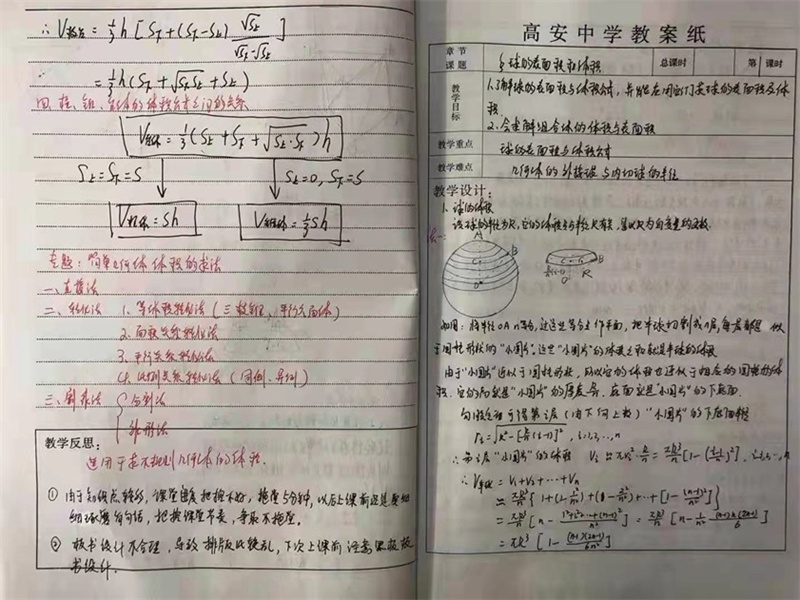 ∴ V棱台 = 1/3 h [S下 + (S下 - S上) √S上 / (√S下 - √S上)]
= 1/3 h (S下 + √S下S上 + S上)
四、柱、锥、台体的体积公式之间的关系
V台体 = 1/3 (S上 + S下 + √S上·S下) h
S上 = S下 = S
S上 = 0, S下 = S
V柱体 = Sh
V锥体 = 1/3 Sh
专题：简单几何体体积的求法
一、直接法
二、转化法 1、等体积转化法（三棱锥、平行六面体）
2、面积关系转化法
3、平行关系转化法
4、比例关系转化法
三、割补法 分割法
补形法
教学反思：
适用于求不规则几何体的体积.
① 由于知识点较多，课堂
② 板书设计不合理，导致排版比较乱，下次上课前注意
书设计.
高安中学教案纸
章节
课题
§ 球的表面积和体积
总课时
第 课时
教学目标
1.了解球的表面积与体积公式，并能应用它们求球的表面积及体
积.
2.会求解组合体的体积与表面积
教学重点
球的表面积与体积公式
教学难点
几何体的外接球与内切球的半径
教学设计：
1、球的体积
设球的半径为R，它的体积只与半径R有关，是以R为自变量的函数.
A
B
C
O
R
如图：将半径OA n等分，过这些等分点作平面，把半球切割成n层，每层都是 似
于圆柱形状的“小圆片”，这些“小圆片”的体积之和就是半球的体积
由于“小圆片”近似于圆柱形状，所以它的体积也近似于相应的圆柱的体
积，它的高就是“小圆片”的厚度 R/n，底面就是“小圆片”的下底面.
勾股定理可得第i层（由下向上数）“小圆片”的下底面半径
ri = √R² - [R/n (i-1)]², i=1,2,…,n
∴ 第i层“小圆片”的体积 Vi ≈ πri²·R/n = πR³/n [1 - ((i-1)/n)²], i=1,2,…,n
∴ V半球 = V1 + V2 + … + Vn
≈ πR³/n { 1 + (1 - 1²/n²) + (1 - 2²/n²) + … + [1 - (n-1)²/n²] }
= πR³/n [n - (1²+2²+…+(n-1)²)/n²] = πR³/n [n - 1/n² · (n-1)n(2n-1)/6]
= πR³ [1 - (n-1)(2n-1)/6n²]